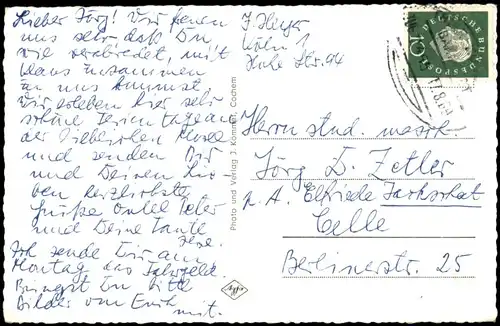 Lieber Jörg! Wir freuen
uns sehr daß Du
wie verabredet, mit
Klaus zusammen
zu uns kommst
Wir erleben hier sehr
schöne Ferientage an
der Mosel
und senden Dir
und Deinen Lie-
ben herzlichste
Grüße Onkel Peter
und Deine Tante
Ilse.
Ich sende Dir am
Montag das Fahrgeld.
Bringst Du bitte
Bilder von Euch
mit.
Photo und Verlag J. Kommer, Cochem
Agfa
J. Heyer
Köln 1
Hohe Str. 94
DEUTSCHE BUNDESPOST
10
Herrn stud.
Jörg D. Zetler
p. A. Elfriede
Celle
Berlinerstr. 25